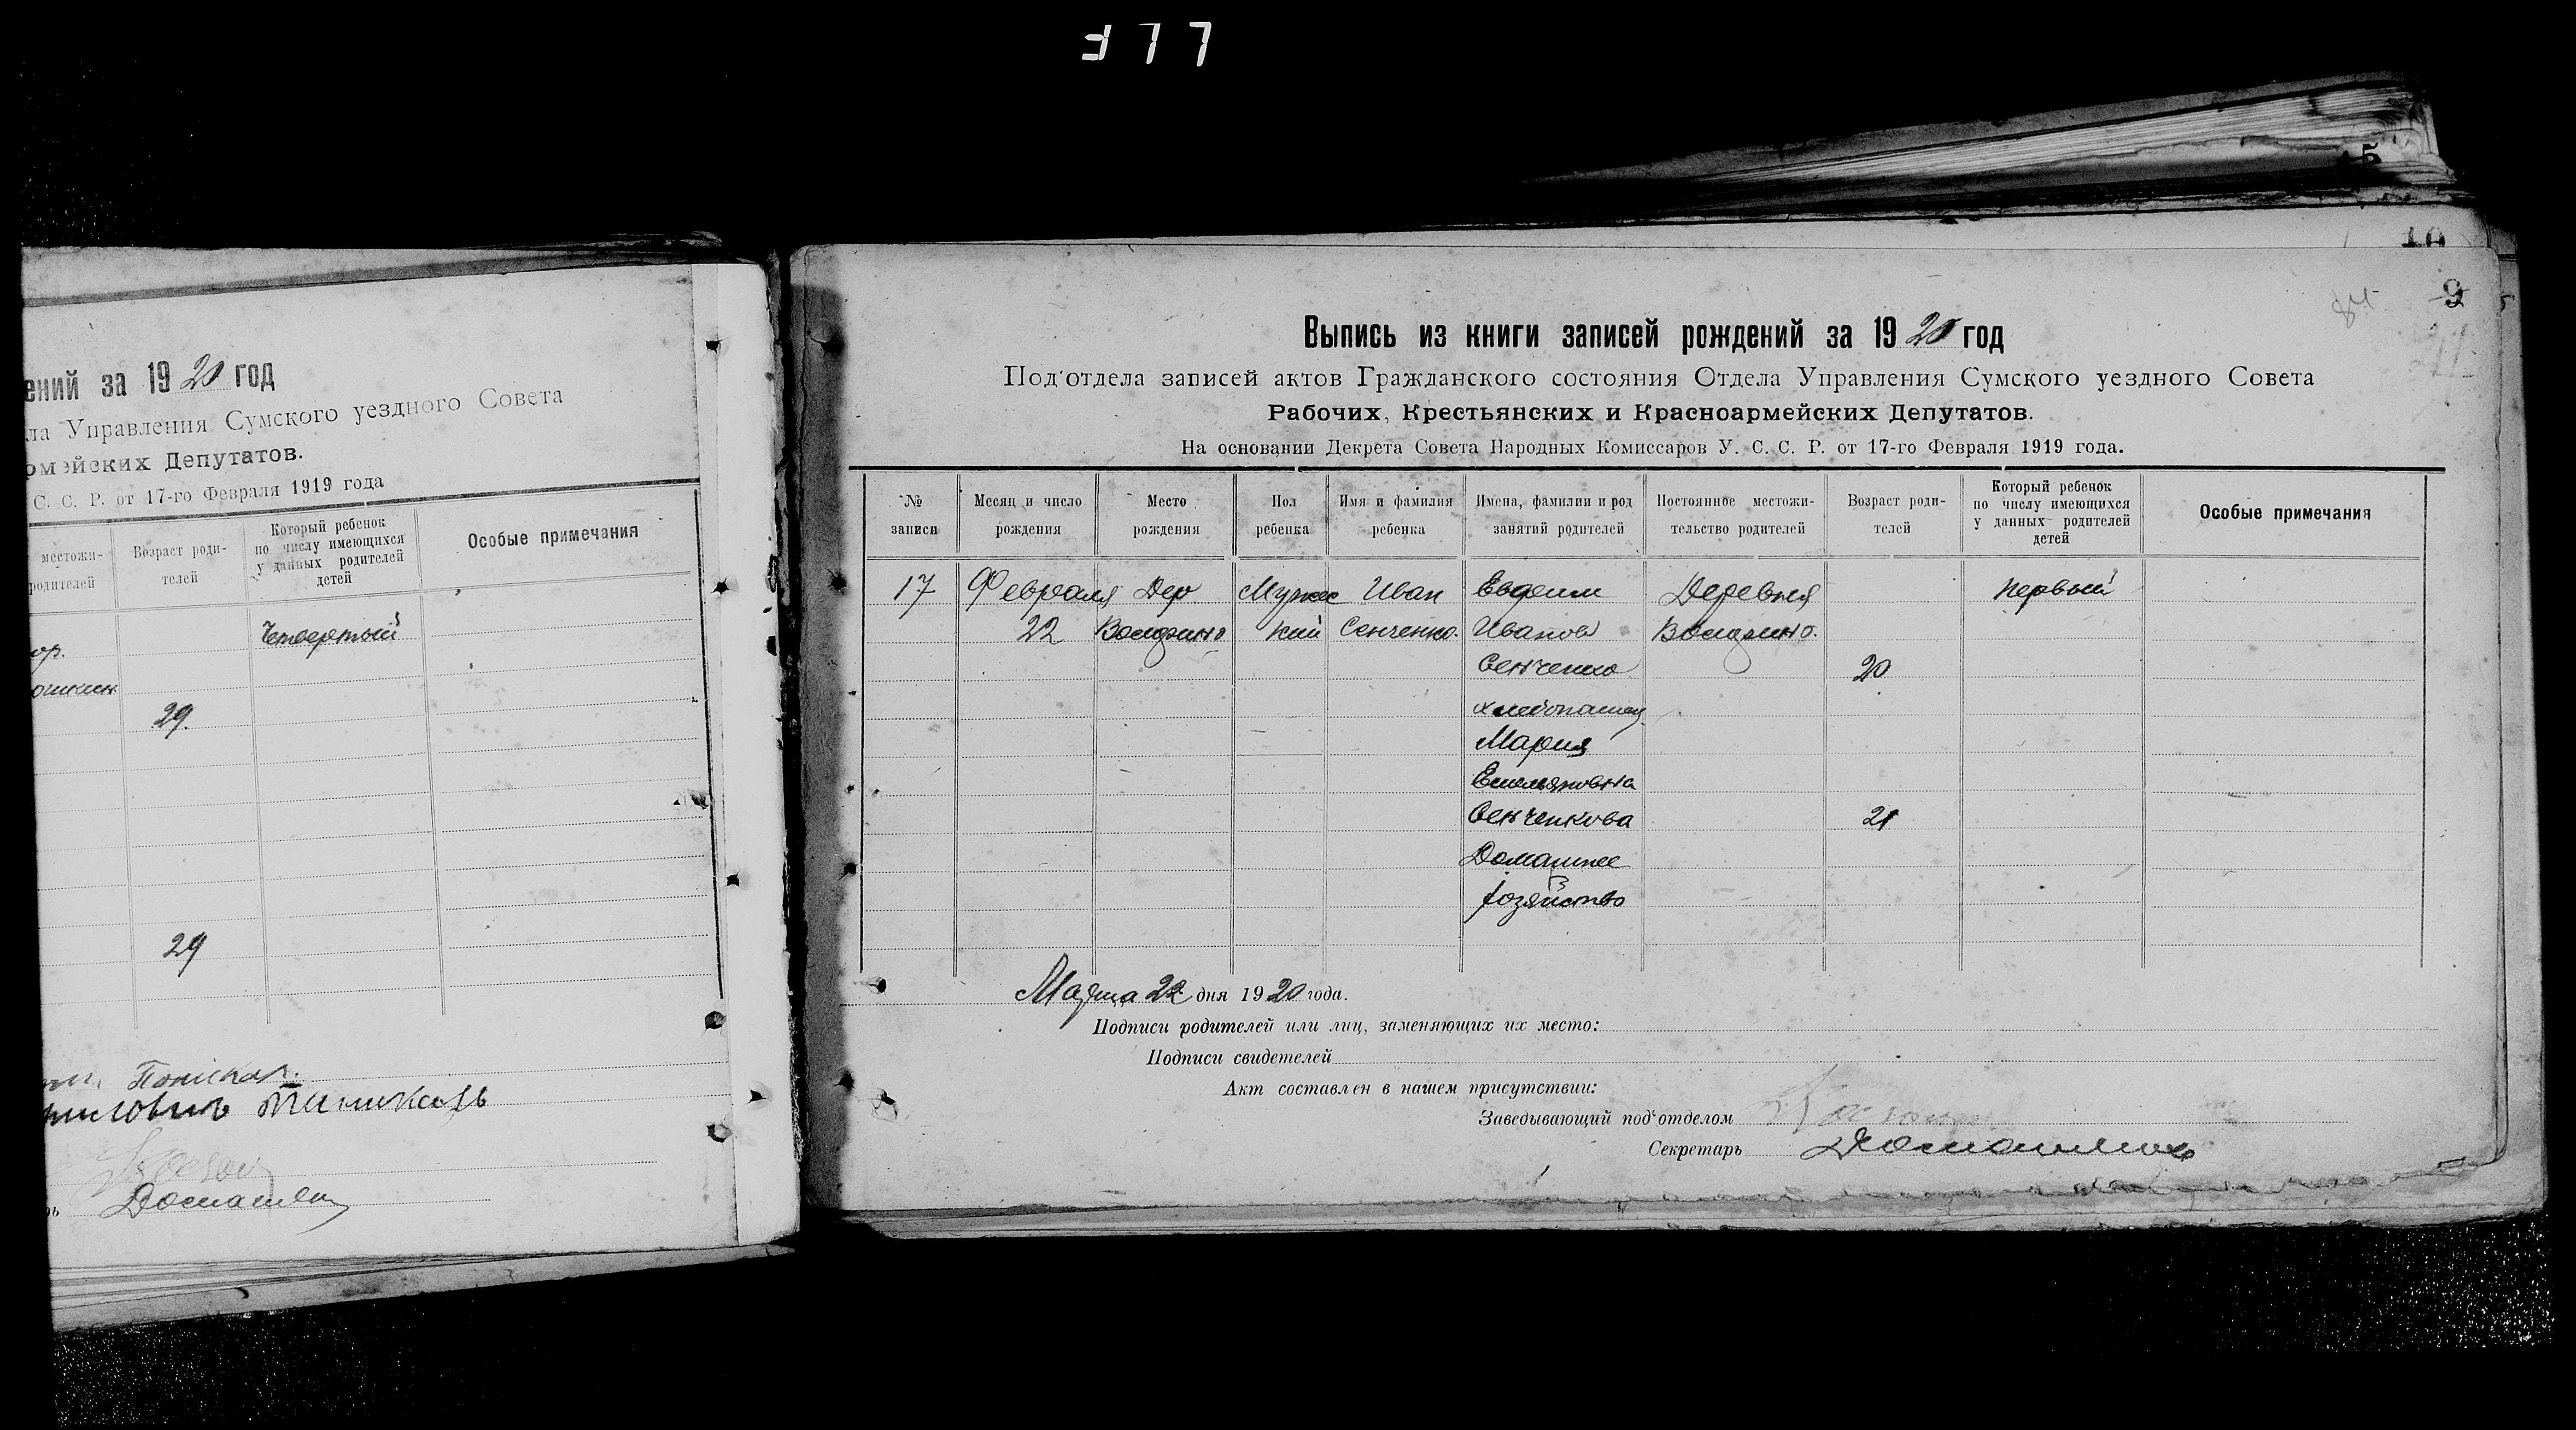 ений за 1920 год
ла Управления Сумского уездного Совета
омейских Депутатов.
С. С. Р. от 17-го Февраля 1919 года
местожи-
родителей
Возраст роди-
телей
Который ребенок
по числу имеющихся
у данных родителей
детей
Особые примечания
Четвертый
ор.
29.
29
Домашен
15
10
9
84
Выпись из книги записей рождений за 1920 год
Под'отдела записей актов Гражданского состояния Отдела Управления Сумского уездного Совета
Рабочих, Крестьянских и Красноармейских Депутатов.
На основании Декрета Совета Народных Комиссаров У. С. С. Р. от 17-го Февраля 1919 года.
№
записи
Месяц и число
рождения
Место
рождения
Пол
ребенка
Имя и фамилия
ребенка
Имена, фамилии и род
занятий родителей
Постоянное местожи-
тельство родителей
Возраст роди-
телей
Который ребенок
по числу имеющихся
у данных родителей
детей
Особые примечания
17 Февраля Дер Мужес Иван Деревня первый
22 кий Сенченко. Иванов
Сенченко 20
хлебопашец
Мария
Емельяновна
Сенченкова 21
Домашнее
хозяйство
Марта 22 дня 1920 года.
Подписи родителей или лиц, заменяющих их место:
Подписи свидетелей
Акт составлен в нашем присутствии:
Заведывающий под'отделом
Секретарь